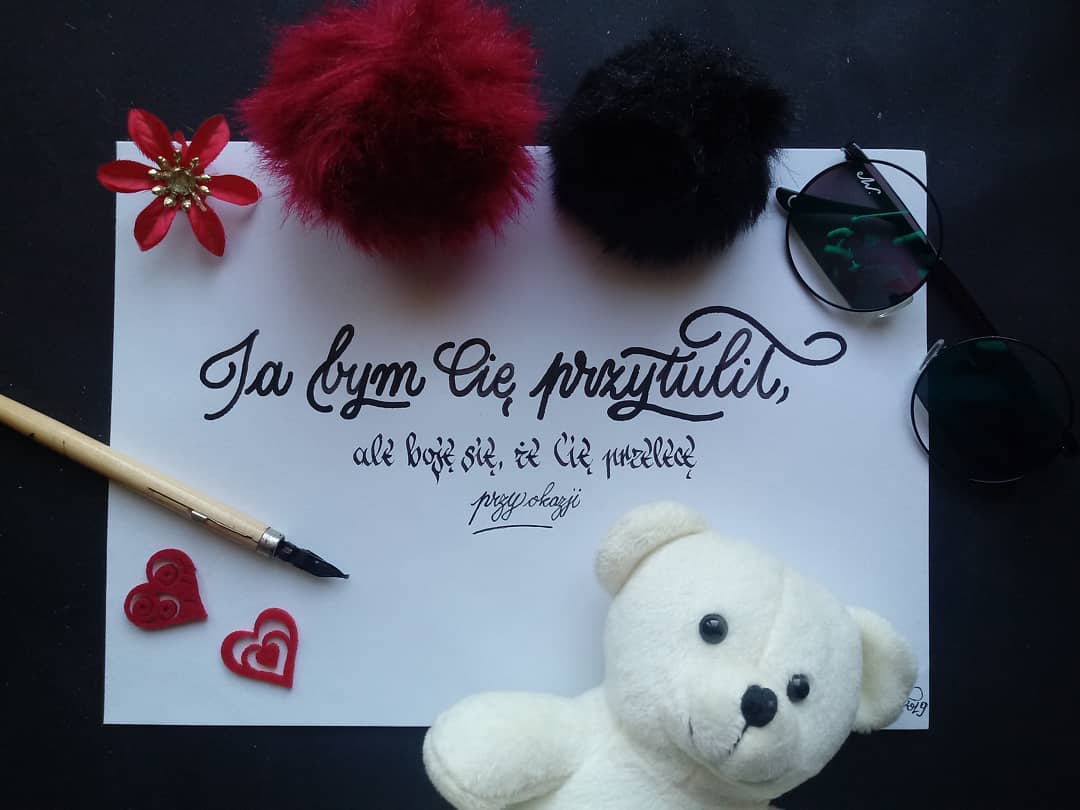 Ja bym Cię przytulił,
ale boję się, że Cię przelecę
przy okazji
2019